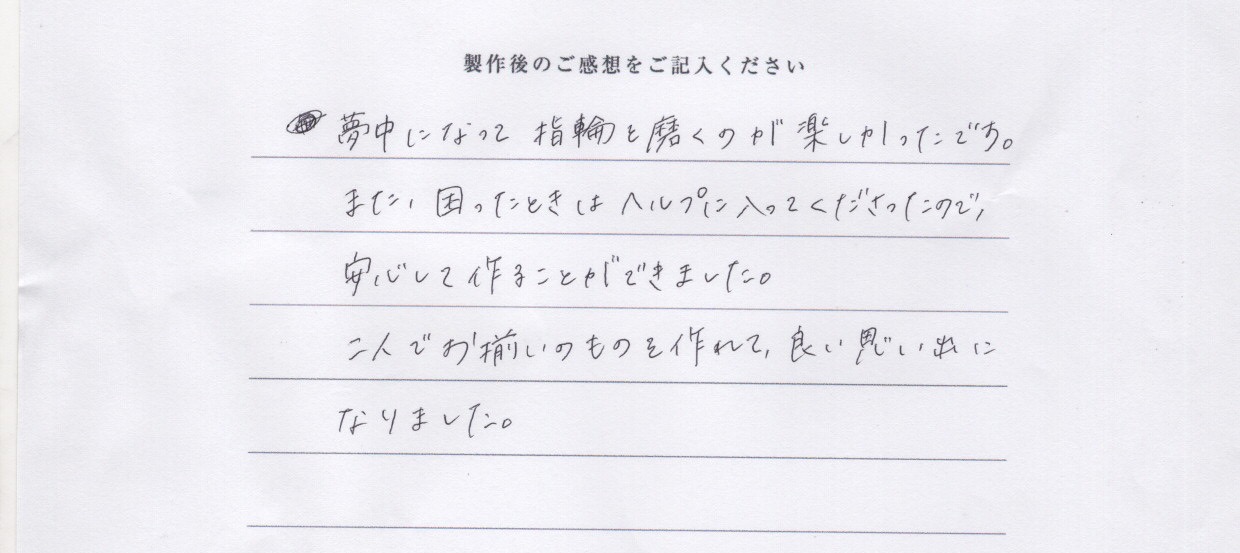 製作後のご感想をご記入ください
夢中になって指輪を磨くのが楽しかったです。
また、困ったときはヘルプに入ってくださったので、
安心して作ることができました。
二人でお揃いのものを作れて、良い思い出に
なりました。